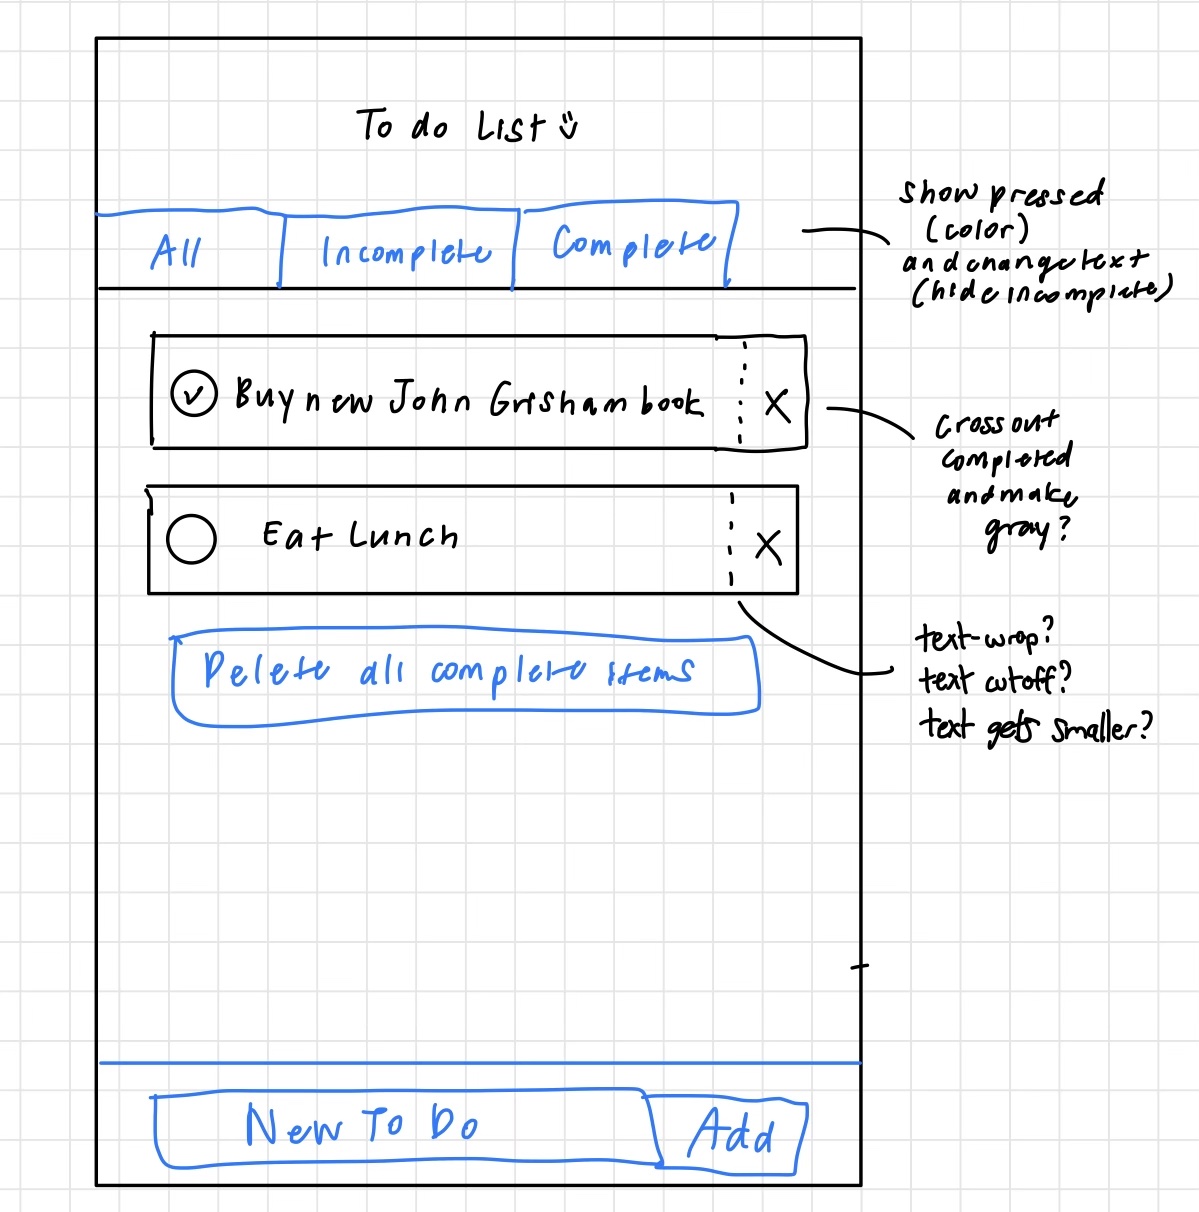 To do List
All
Incomplete
Complete
show pressed
(color)
and change text
(hide incomplete)
Buy new John Grisham book
X
cross out
completed
and make
gray?
Eat Lunch
X
text-wrap?
text cutoff?
text gets smaller?
Delete all complete items
New To Do
Add